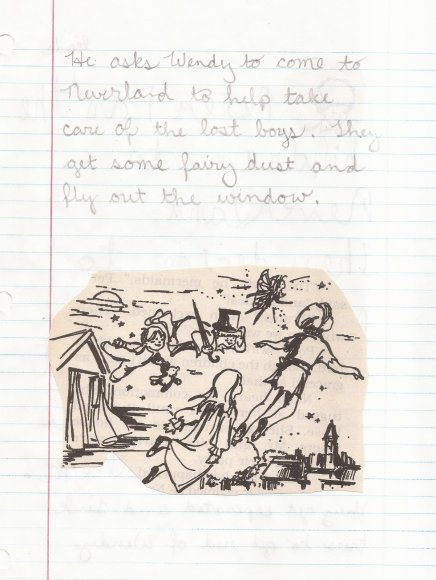 He asks Wendy to come to
Neverland to help take
care of the lost boys. They
get some fairy dust and
fly out the window.